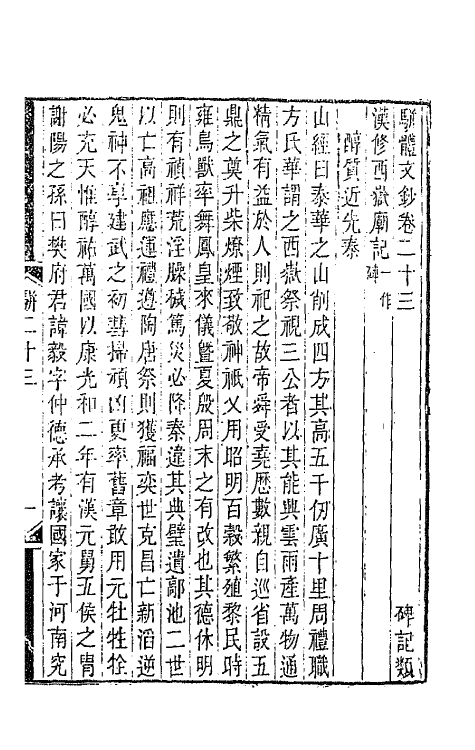 駢體文鈔卷二十三 碑記類
漢修西嶽廟記一作碑
醇質近先秦
山經曰泰華之山削成四方其高五千仞廣十里周禮職
方氏華謂之西嶽祭視三公者以其能興雲雨產萬物通
精氣有益於人則祀之故帝舜受堯歷數親自巡省設五
鼎之奠升柴燎煙致敬神祇乂用昭明百穀繁殖黎民時
雍鳥獸率舞鳳皇來儀暨夏殷周末之有改也其德休明
則有禎祥荒淫臊穢篤災必降秦違其典璧遺鄗池二世
以亡高祖應運禮遵陶唐祭則獲福奕世克昌亡新滔逆
鬼神不享建武之初彗掃頑凶更率舊章敢用元牡牲牷
必充天惟醇祐萬國以康光和二年有漢元舅五侯之胄
謝陽之孫曰樊府君諱毅字仲德承考讓國家于河南究
駢二十三 一